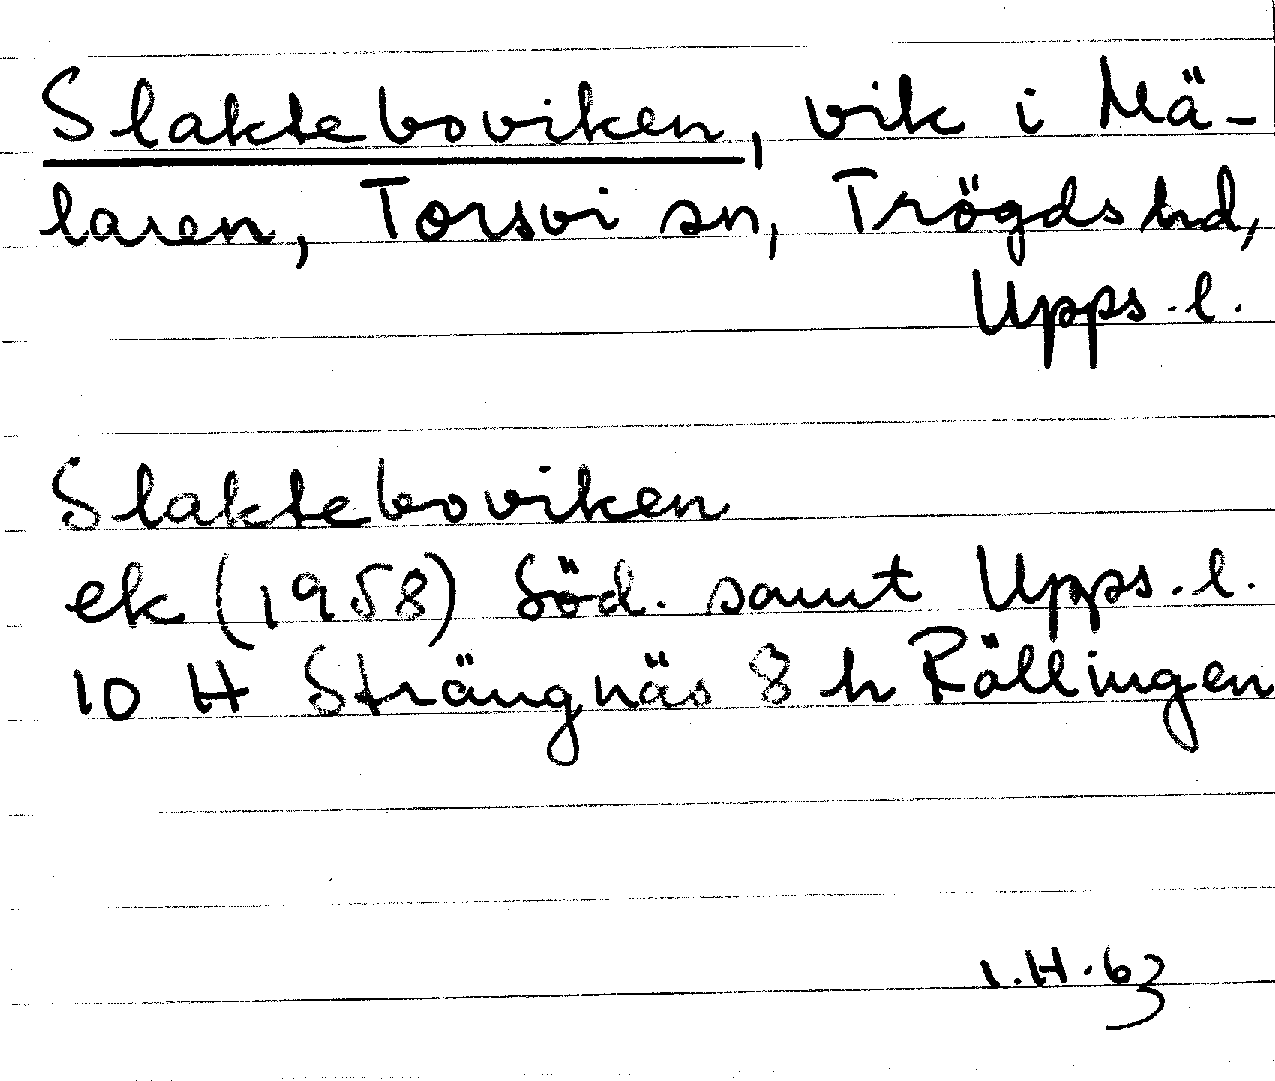 Slakteboviken, vik i Mä-
laren, Torsvi sn, Trögds hd,
Upps. l.
Slakteboviken
ek (1958) Söd. samt Upps. l.
10 H Strängnäs 8 h Rällingen
I.H. 63